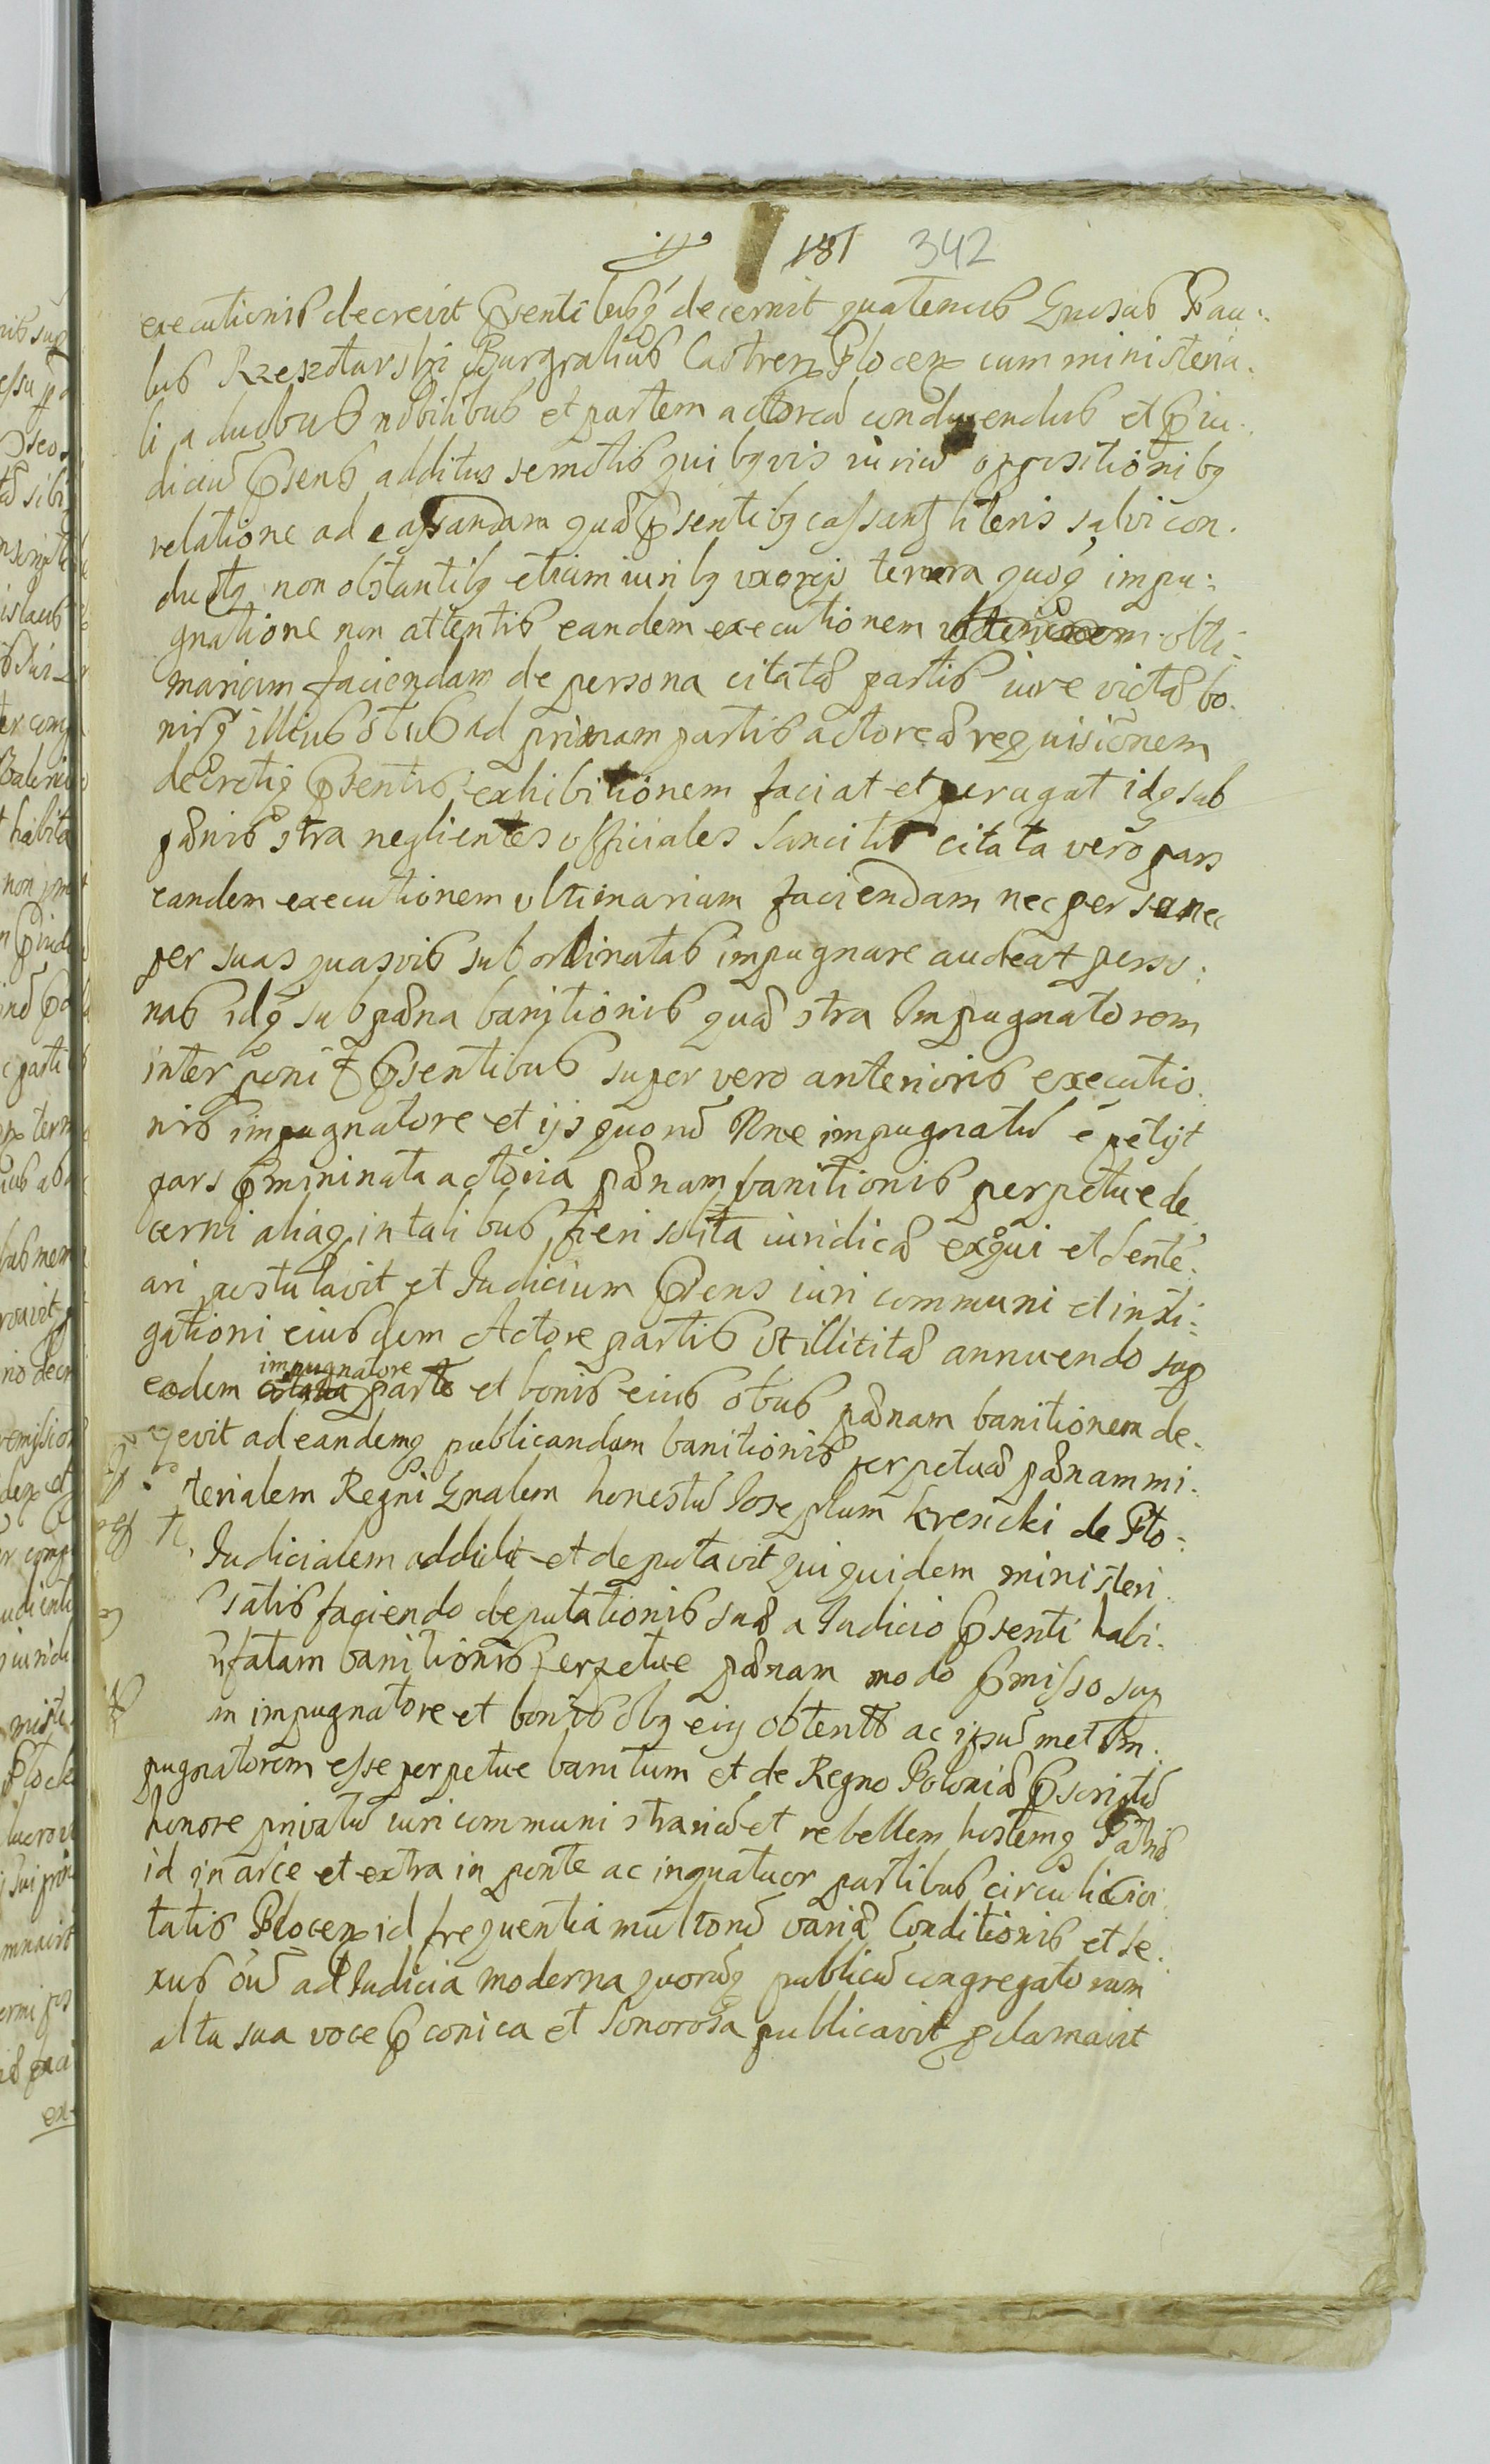 181 342
executionis decrevit Psentibusq decernit quatenus Gnosus Pau:
lus Rzeszotarski Burgrabius Castren Plocen cum ministeria.
li a duobus nobilibus et partem actorea conducendus et P iu.
diciu Psens additus semotis quibqvis iuriu oppositionibq
relatione ad cassandam qua Psentibq cassant literis salvi con.
ductq non obstantibq etiam iuribq uxoreis temera quoq impu:
gnatione non attentis eandem executionem ulti:
mariam faciendam de persona citata partis iure victa bo.
nisq illius otus ad primam partis actorea requisitionem
decretiq Psentis exhibitionem faciat et peragat idq sub
pænis stra neglientes officiales sancitis citata vero pars
eandem executionem ultimariam faciendam nec per se nec
per suas quasvis subordinatas impugnare audeat perso:
nas idq sub pæna banitionis qua stra Impugnatorem
interponit Psentibus super vero anterioris executio.
nis impugnatore et ijs quoru Nne impugnatu e petijt
pars Pmininata actoria pænam banitionis perpetue de
cerni aliaq in talibus fieri solita iuridica exqui et Sente.
ari postulavit et Judicium Psens iuri communi et insti:
gationi eiusdem Actore partis ut illicita annuendo sup
eodem citata impugnatore parte et bonis eius otbus pænam banitionem de.
evit ad eandemq publicandam banitionis perpetua pænam mi.
terialem Regni Gnalem honestu Josephum Krencki de Plo:
Judicialem addidit et deputavit qui quidem ministeri.
satisfaciendo deputationis sua a Judicio Psenti habi.
fatam banitionis perpetue pænam modo Pmisso sup
m impugnatore et bonis obq eiq obtentis ac ipsumet Im.
pugnatorem esse perpetue banitum et de Regno Polonia Pscriptu
honore privatu iuri communi strariu et rebellem hostemq Patria
id in arce et extra in ponte ac in quatuor partibus circuli civi.
tatis Plocen id frequentia multoru varia Conditionis et se.
xus oiu ad Judicia moderna quoruq publicu congregatorum
alta sua voce Pconica et Sonorosa publicavit pclamavit